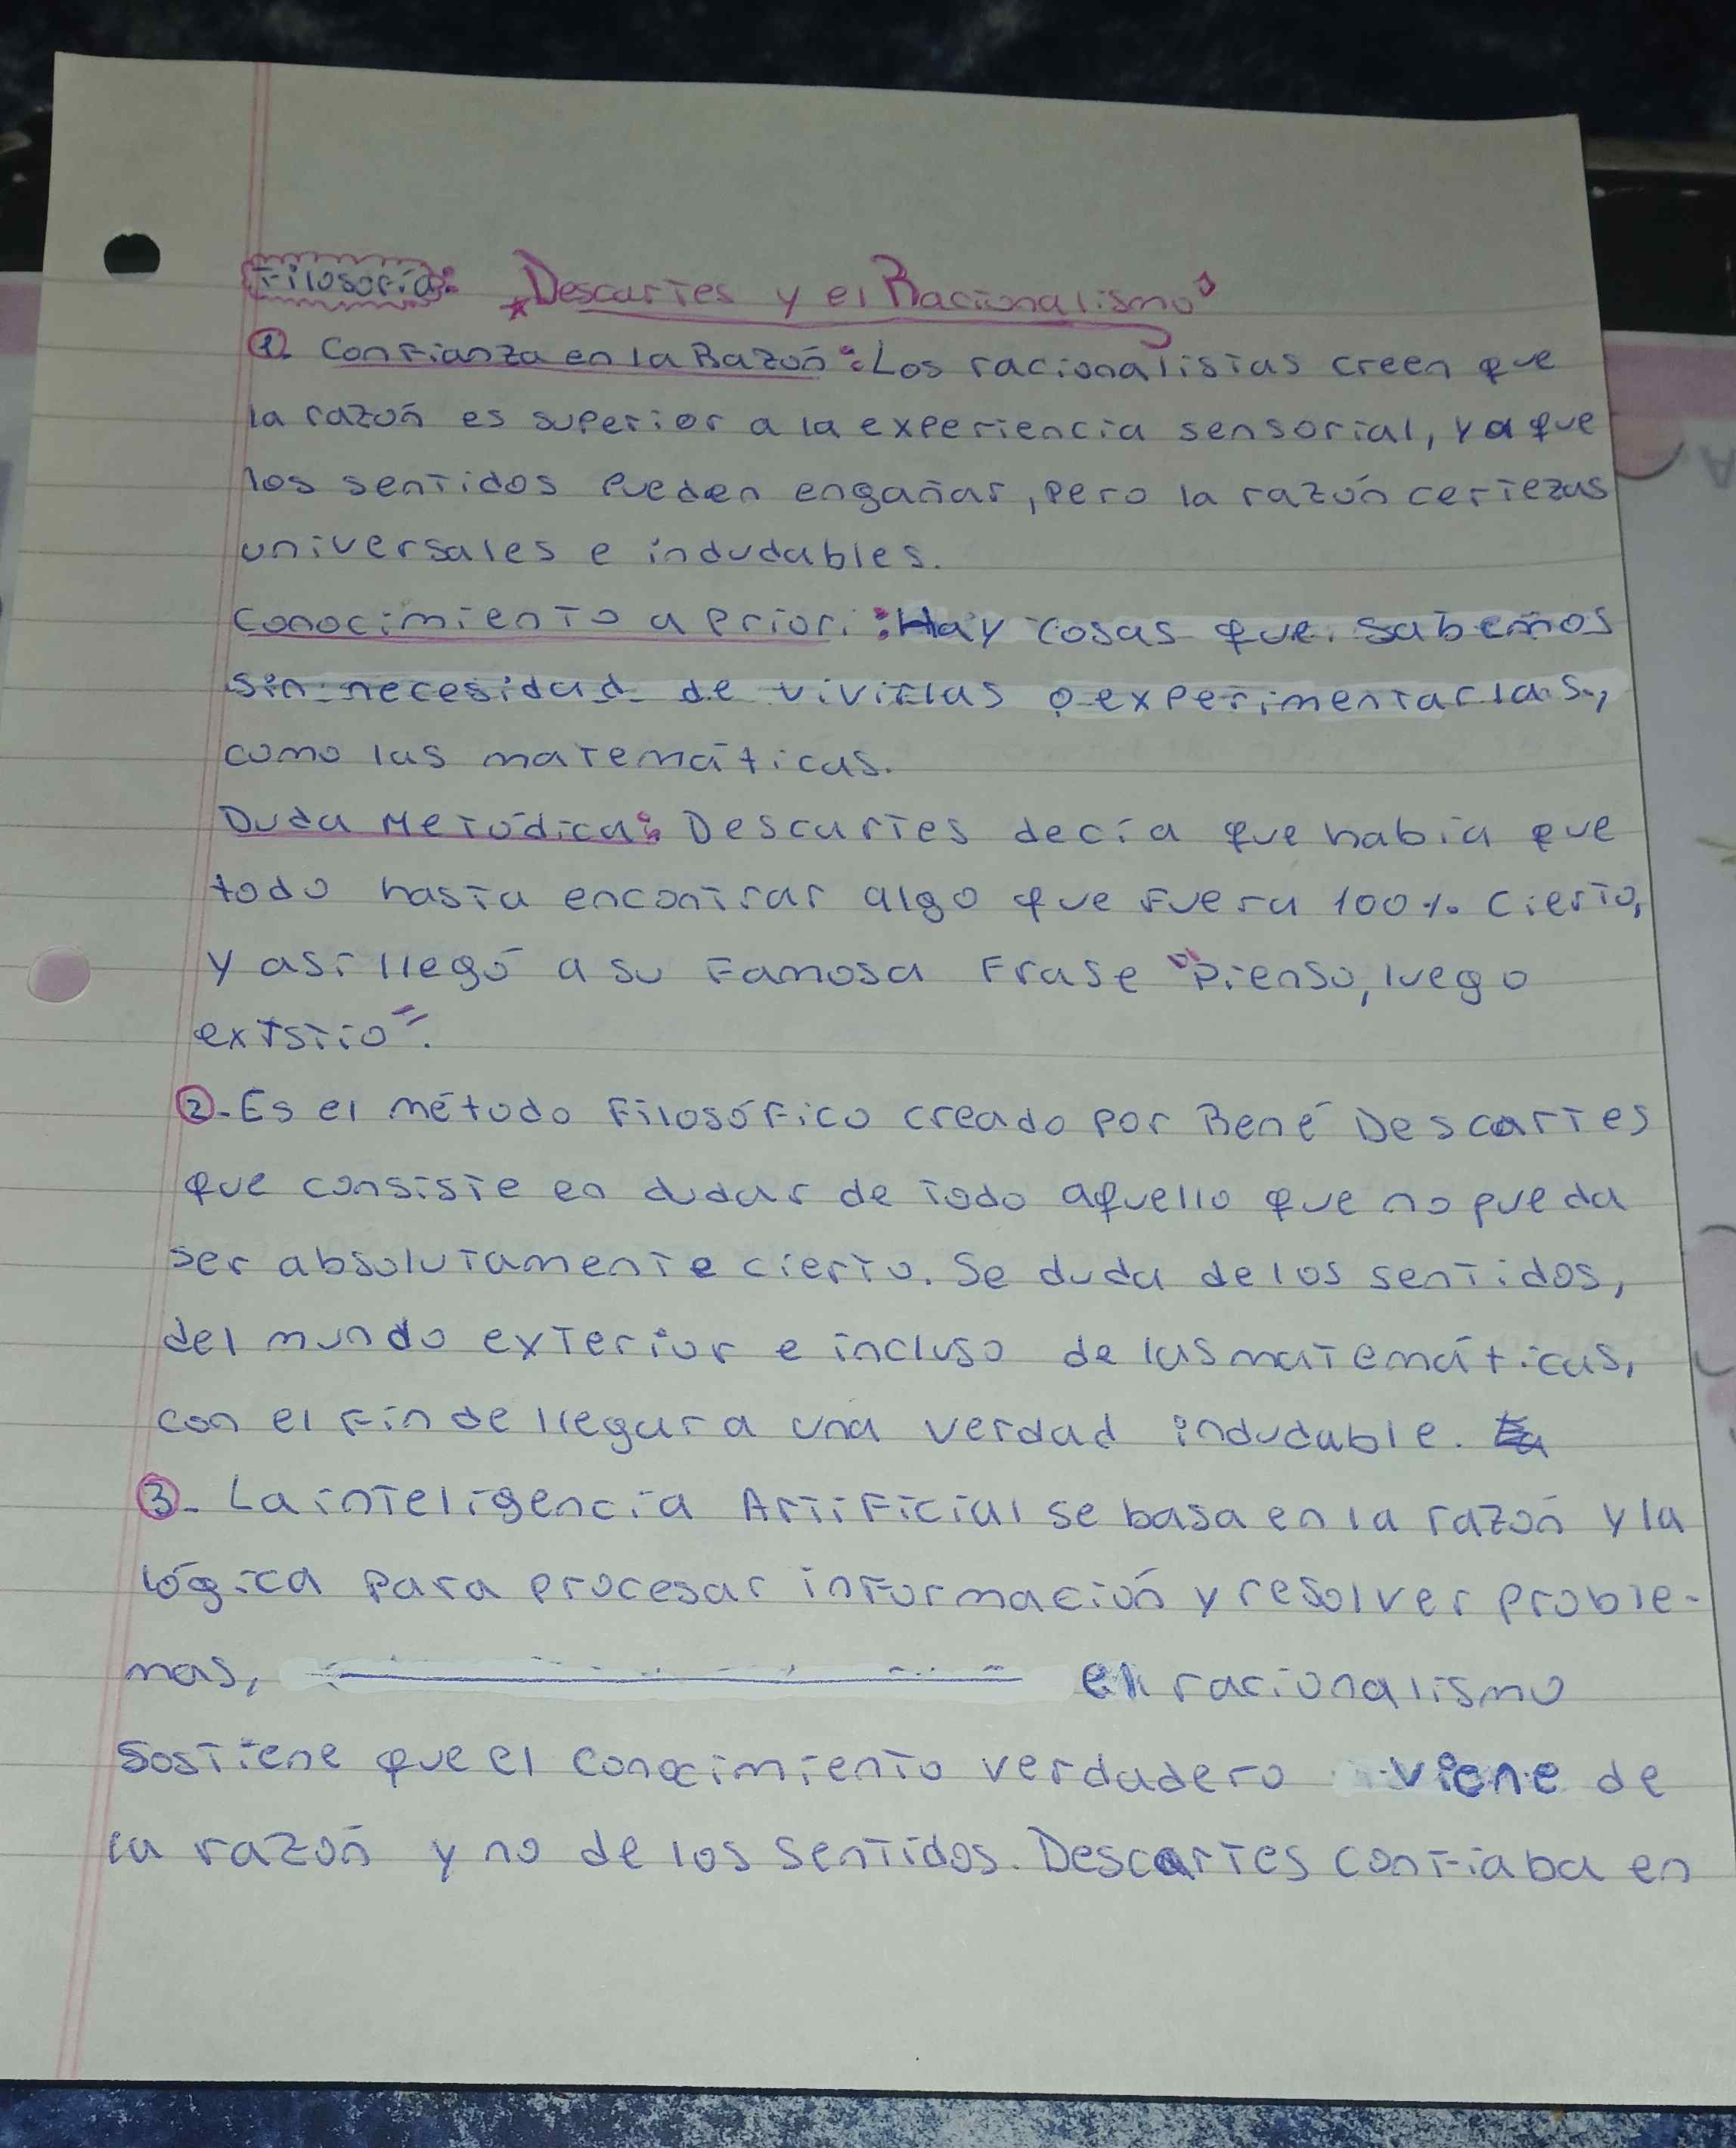 Filosofía: Descartes y el Racionalismo
1. Confianza en la Razón: Los racionalistas creen que
la razón es superior a la experiencia sensorial, ya que
los sentidos pueden engañar, pero la razón certezas
universales e indudables.
Conocimiento a priori: Hay cosas que sabemos
sin necesidad de vivirlas o experimentarlas,
como las matemáticas.
Duda Metódica: Descartes decía que había que
todo hasta encontrar algo que fuera 100% cierto,
y así llegó a su famosa frase "Pienso, luego
existio".
2- Es el método filosófico creado por René Descartes
que consiste en dudar de todo aquello que no pueda
ser absolutamente cierto. Se duda de los sentidos,
del mundo exterior e incluso de las matemáticas,
con el fin de llegar a una verdad indudable.
3- La inteligencia Artificial se basa en la razón y la
lógica para procesar información y resolver proble-
mas, el racionalismo
sostiene que el conocimiento verdadero viene de
la razón y no de los sentidos. Descartes confiaba en